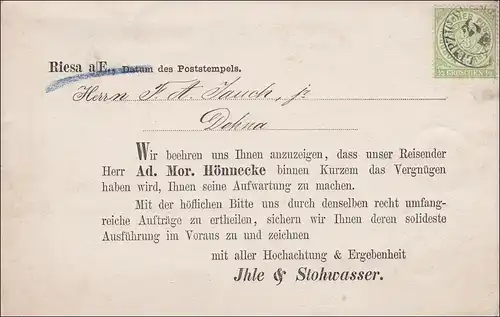 Riesa a/E., Datum des Poststempels.
Herrn F. A. Jauch, jr
Dohna
Wir beehren uns Ihnen anzuzeigen, dass unser Reisender
Herr Ad. Mor. Hönnecke binnen Kurzem das Vergnügen
haben wird, Ihnen seine Aufwartung zu machen.
Mit der höflichen Bitte uns durch denselben recht umfang-
reiche Aufträge zu ertheilen, sichern wir Ihnen deren solideste
Ausführung im Voraus zu und zeichnen
mit aller Hochachtung & Ergebenheit
Jhle & Stohwasser.
1/3 GROSCHEN 1/3